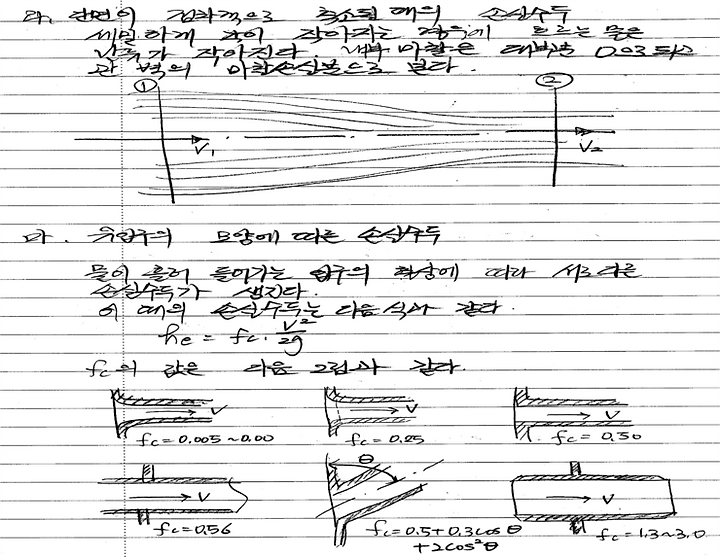 라. 단면이 점차적으로 축소될 때의 손실수두
세밀하게 관이 작아지는 경우에 흐르는 물은
난류가 작아진다. 내부마찰은 대부분 0.03 되고
관 벽의 마찰손실분으로 본다.
① ②
V₁ V₂
마. 유입구의 모양에 따른 손실수두
물이 흘러 들어가는 입구의 형상에 따라 서로 다른
손실수두가 생긴다.
이 때의 손실수두는 다음 식과 같다.
he = fc · V²/2g
fc의 값은 다음 그림과 같다.
V V V
fc = 0.005 ~ 0.00 fc = 0.25 fc = 0.50
θ
V V
fc = 0.56 fc = 0.5 + 0.3cos θ fc = 1.3 ~ 3.0
+ 2cos²θ